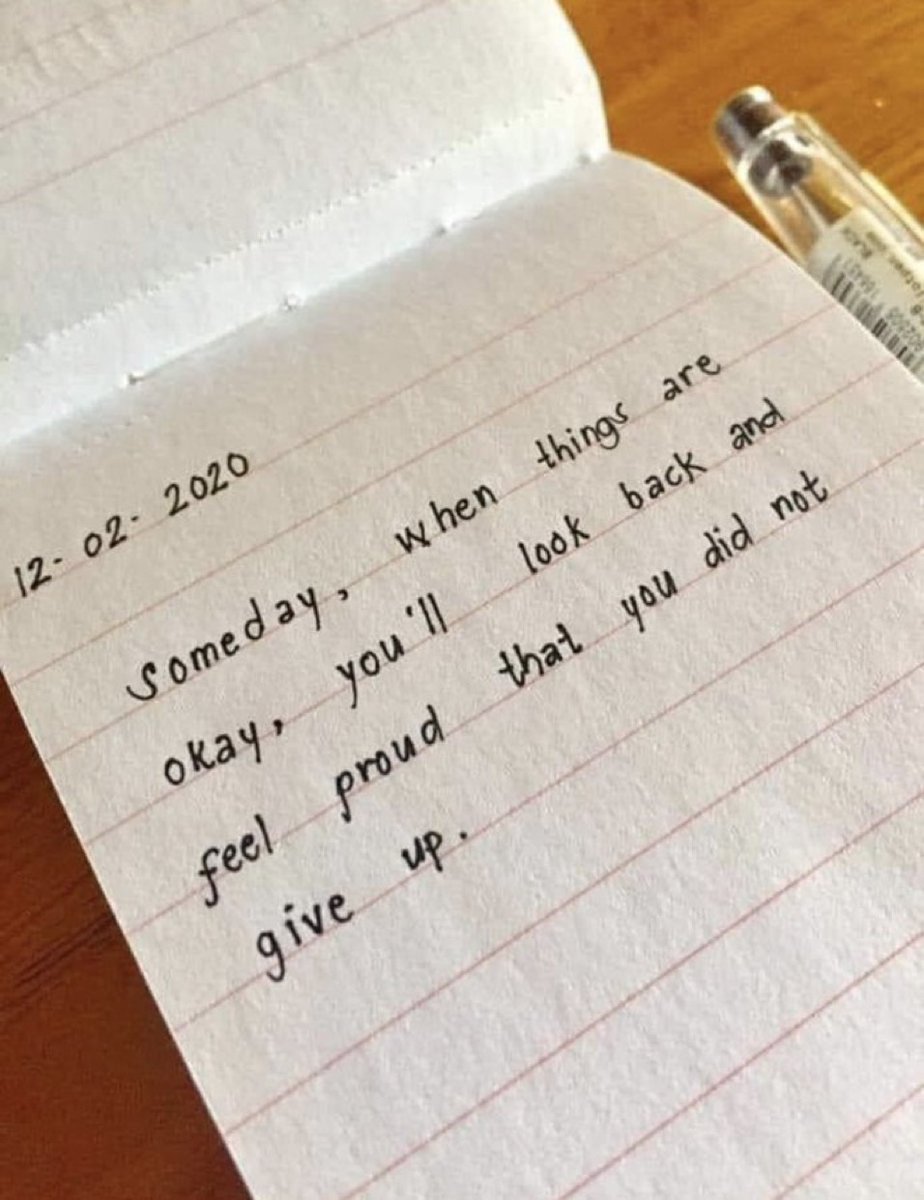 12-02-2020
Someday, when things are
okay, you'll look back and
feel proud that you did not
give up.
BLACK